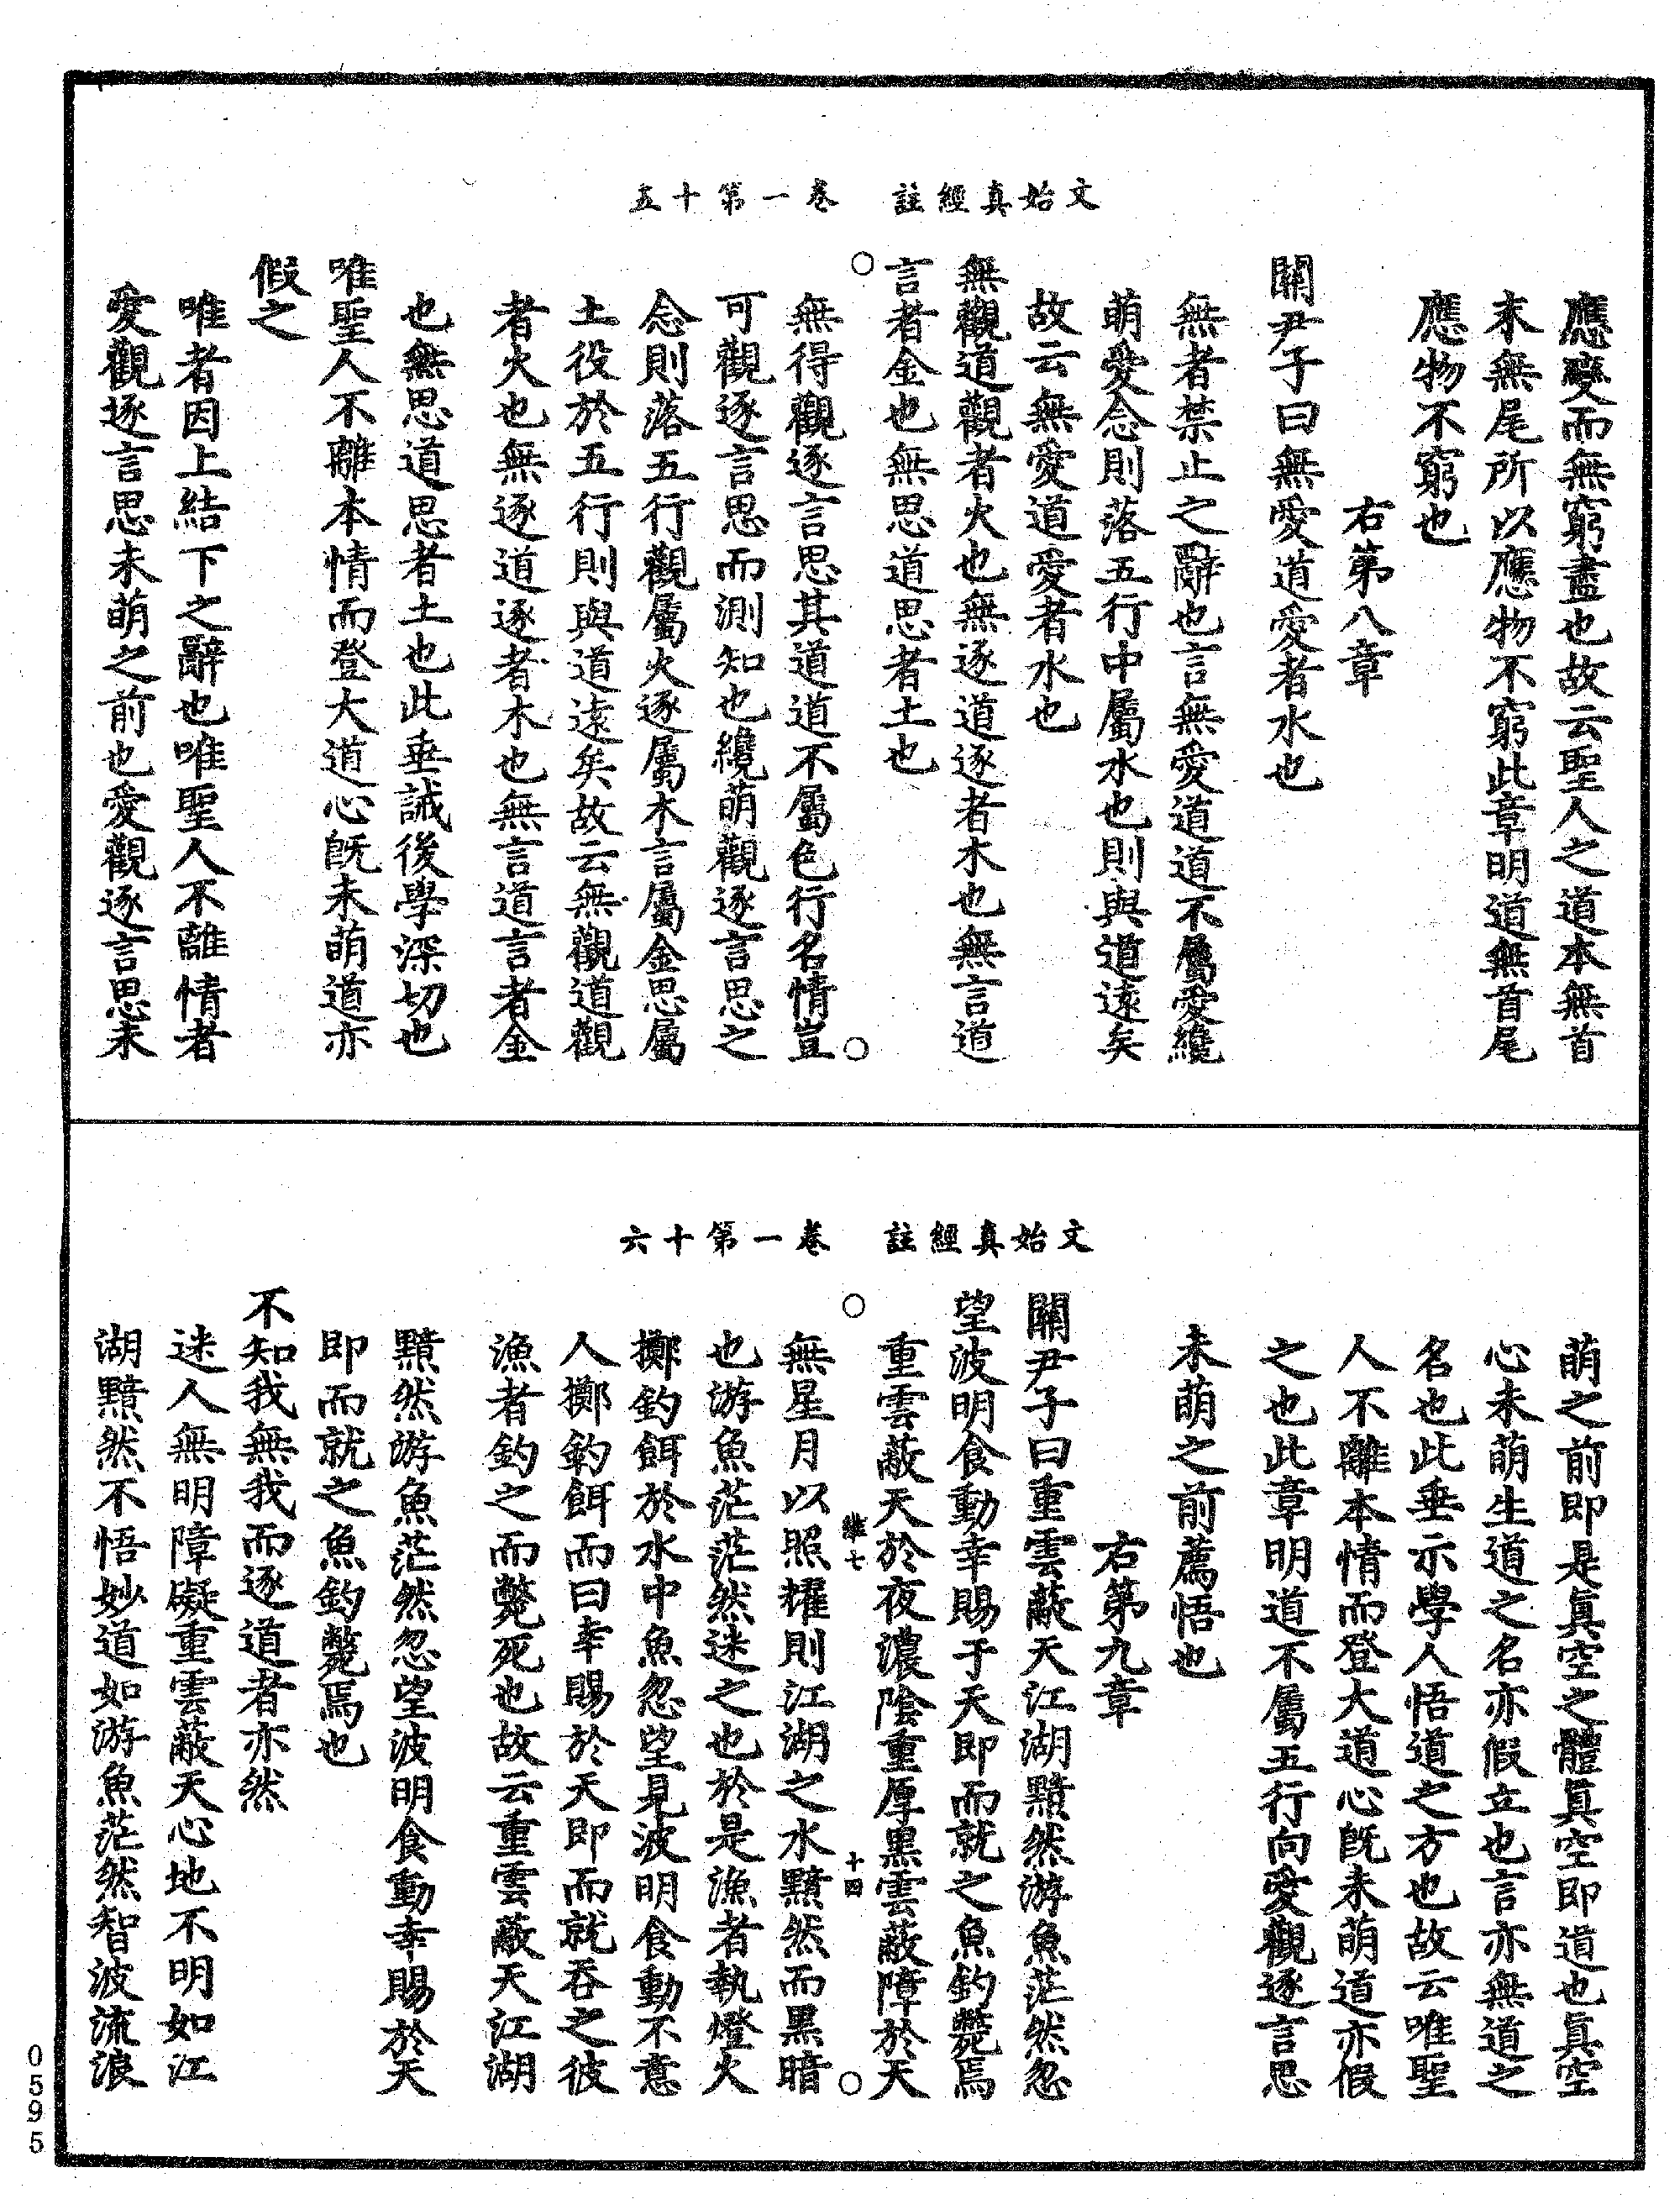 文始真經註　卷一第十五
應變而無窮盡也故云聖人之道本無首
末無尾所以應物不窮此章明道無首尾
應物不窮也
右第八章
關尹子曰無愛道愛者水也
無者禁止之辭也言無愛道道不屬愛纔
萌愛念則落五行中屬水也則與道遠矣
故云無愛道愛者水也
無觀道觀者火也無逐道逐者木也無言道
言者金也無思道思者土也
無得觀逐言思其道道不屬色行名情豈
可觀逐言思而測知也纔萌觀逐言思之
念則落五行觀屬火逐屬木言屬金思屬
土役於五行則與道遠矣故云無觀道觀
者火也無逐道逐者木也無言道言者金
也無思道思者土也此垂誡後學深切也
唯聖人不離本情而登大道心旣未萌道亦
假之
唯者因上結下之辭也唯聖人不離情者
愛觀逐言思未萌之前也愛觀逐言思未
文始真經註　卷一第十六
萌之前即是真空之體真空即道也真空
心未萌生道之名亦假立也言亦無道之
名也此垂示學人悟道之方也故云唯聖
人不離本情而登大道心旣未萌道亦假
之也此章明道不屬五行向愛觀逐言思
未萌之前薦悟也
右第九章
關尹子曰重雲蔽天江湖黮然游魚茫然忽
望波明食動幸賜于天即而就之魚釣斃焉
重雲蔽天於夜濃陰重厚黑雲蔽障於天
維七　十四
無星月以照耀則江湖之水黮然而黑暗
也游魚茫茫然迷之也於是漁者執燈火
擲釣餌於水中魚忽望見波明食動不意
人擲釣餌而曰幸賜於天即而就吞之彼
漁者釣之而斃死也故云重雲蔽天江湖
黮然游魚茫然忽望波明食動幸賜於天
即而就之魚釣斃焉也
不知我無我而逐道者亦然
迷人無明障礙重雲蔽天心地不明如江
湖黮然不悟妙道如游魚茫然智波流浪
0595